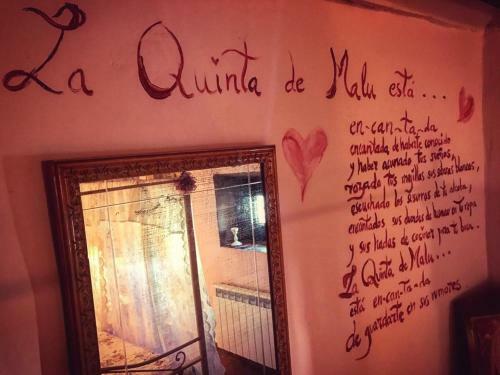 La Quinta de Malu está ...
en-can-ta-da
encantada de haberte conocido
y haber acunado tus sueños,
rozado tus mejillas sus sábanas blancas,
escuchado los susurros de tu alcoba,
encantados sus duendes de en tu ropa
y sus hadas de para te bien.
La Quinta de Malu...
está en-can-ta-da
de guardarte en sus rumores